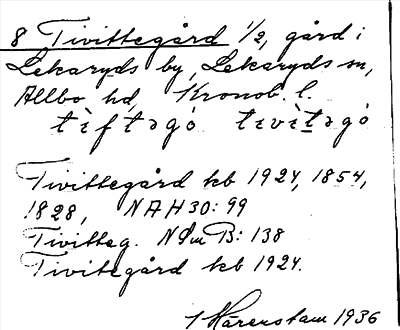 8 Tivittegård 1/2, gård i
Lekaryds by, Lekaryds sn,
Allbo hd, Kronob. l.
tìftəgó tıvìtəgó
Tivittegård kb 1924, 1854,
1828, NAH30: 99
Tivitteg. NSmB: 138
Tivitegård kb 1924.
1936